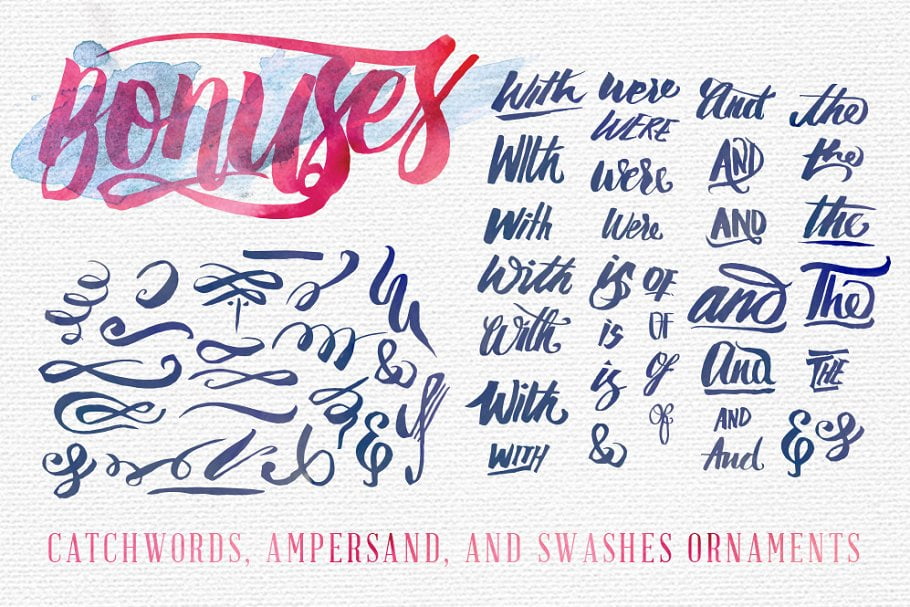 Bonuses
With were And the
WERE
With were AND the
With Were AND the
With is OF and The
With is OF
is of And THE
With of AND & &
WITH & And
&
& &
CATCHWORDS, AMPERSAND, AND SWASHES ORNAMENTS